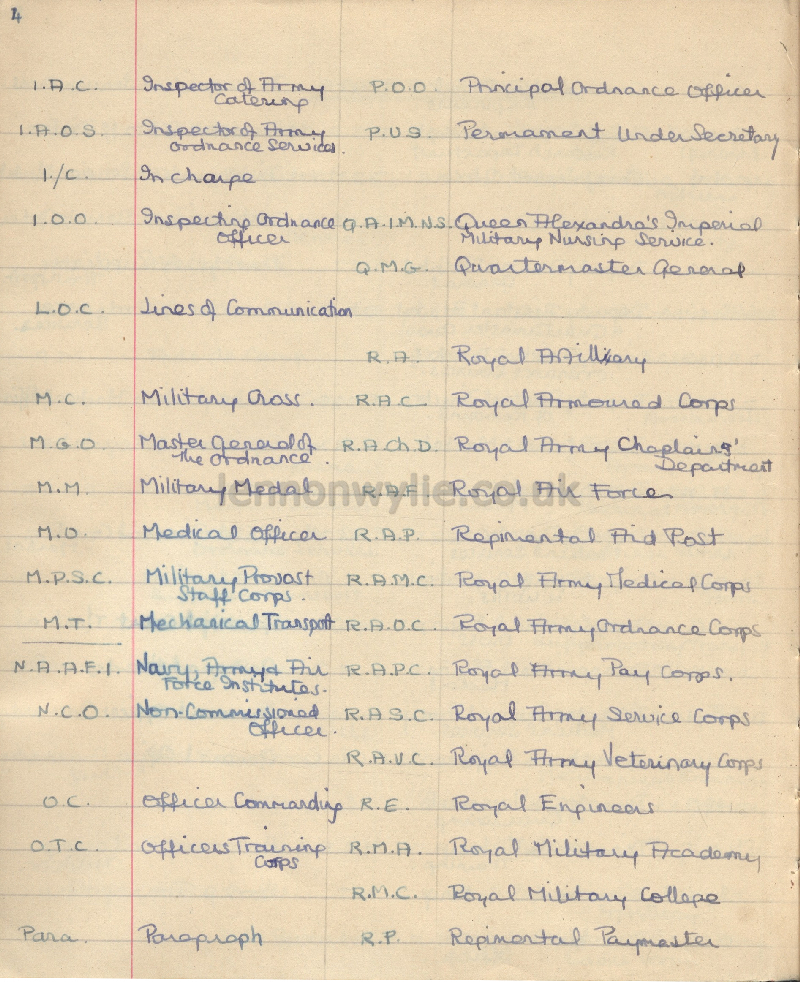 4
I.A.C. Inspector of Army P.O.O. Principal Ordnance Officer
Catering
I.A.O.S. Inspector of Army P.U.S. Permament Under Secretary
Ordnance Services.
I./C. In charge
I.O.O Inspecting Ordnance Q.A.I.M.N.S. Queen Alexandra's Imperial
Officer Military Nursing Service.
Q.M.G. Quartermaster General
L.O.C. Lines of Communication
R.A. Royal Artillery
M.C. Military Cross. R.A.C. Royal Armoured Corps
M.G.O Master General of R.A.Ch.D. Royal Army Chaplains'
the Ordnance. Department
M.M. Military Medal R.A.F. Royal Air Force
lennonwylie.co.uk
M.O. Medical Officer R.A.P. Regimental Aid Post
M.P.S.C. Military Provost R.A.M.C. Royal Army Medical Corps
Staff Corps.
M.T. Mechanical Transport R.A.O.C. Royal Army Ordnance Corps
N.A.A.F.I. Navy, Army & Air R.A.P.C. Royal Army Pay Corps.
Force Institutes.
N.C.O. Non-Commissioned R.A.S.C. Royal Army Service Corps
Officer.
R.A.V.C. Royal Army Veterinary Corps
O.C. Officer Commanding R.E. Royal Engineers
O.T.C. Officers Training R.M.A. Royal Military Academy
Corps
R.M.C. Royal Military College
Para. Paragraph R.P. Regimental Paymaster